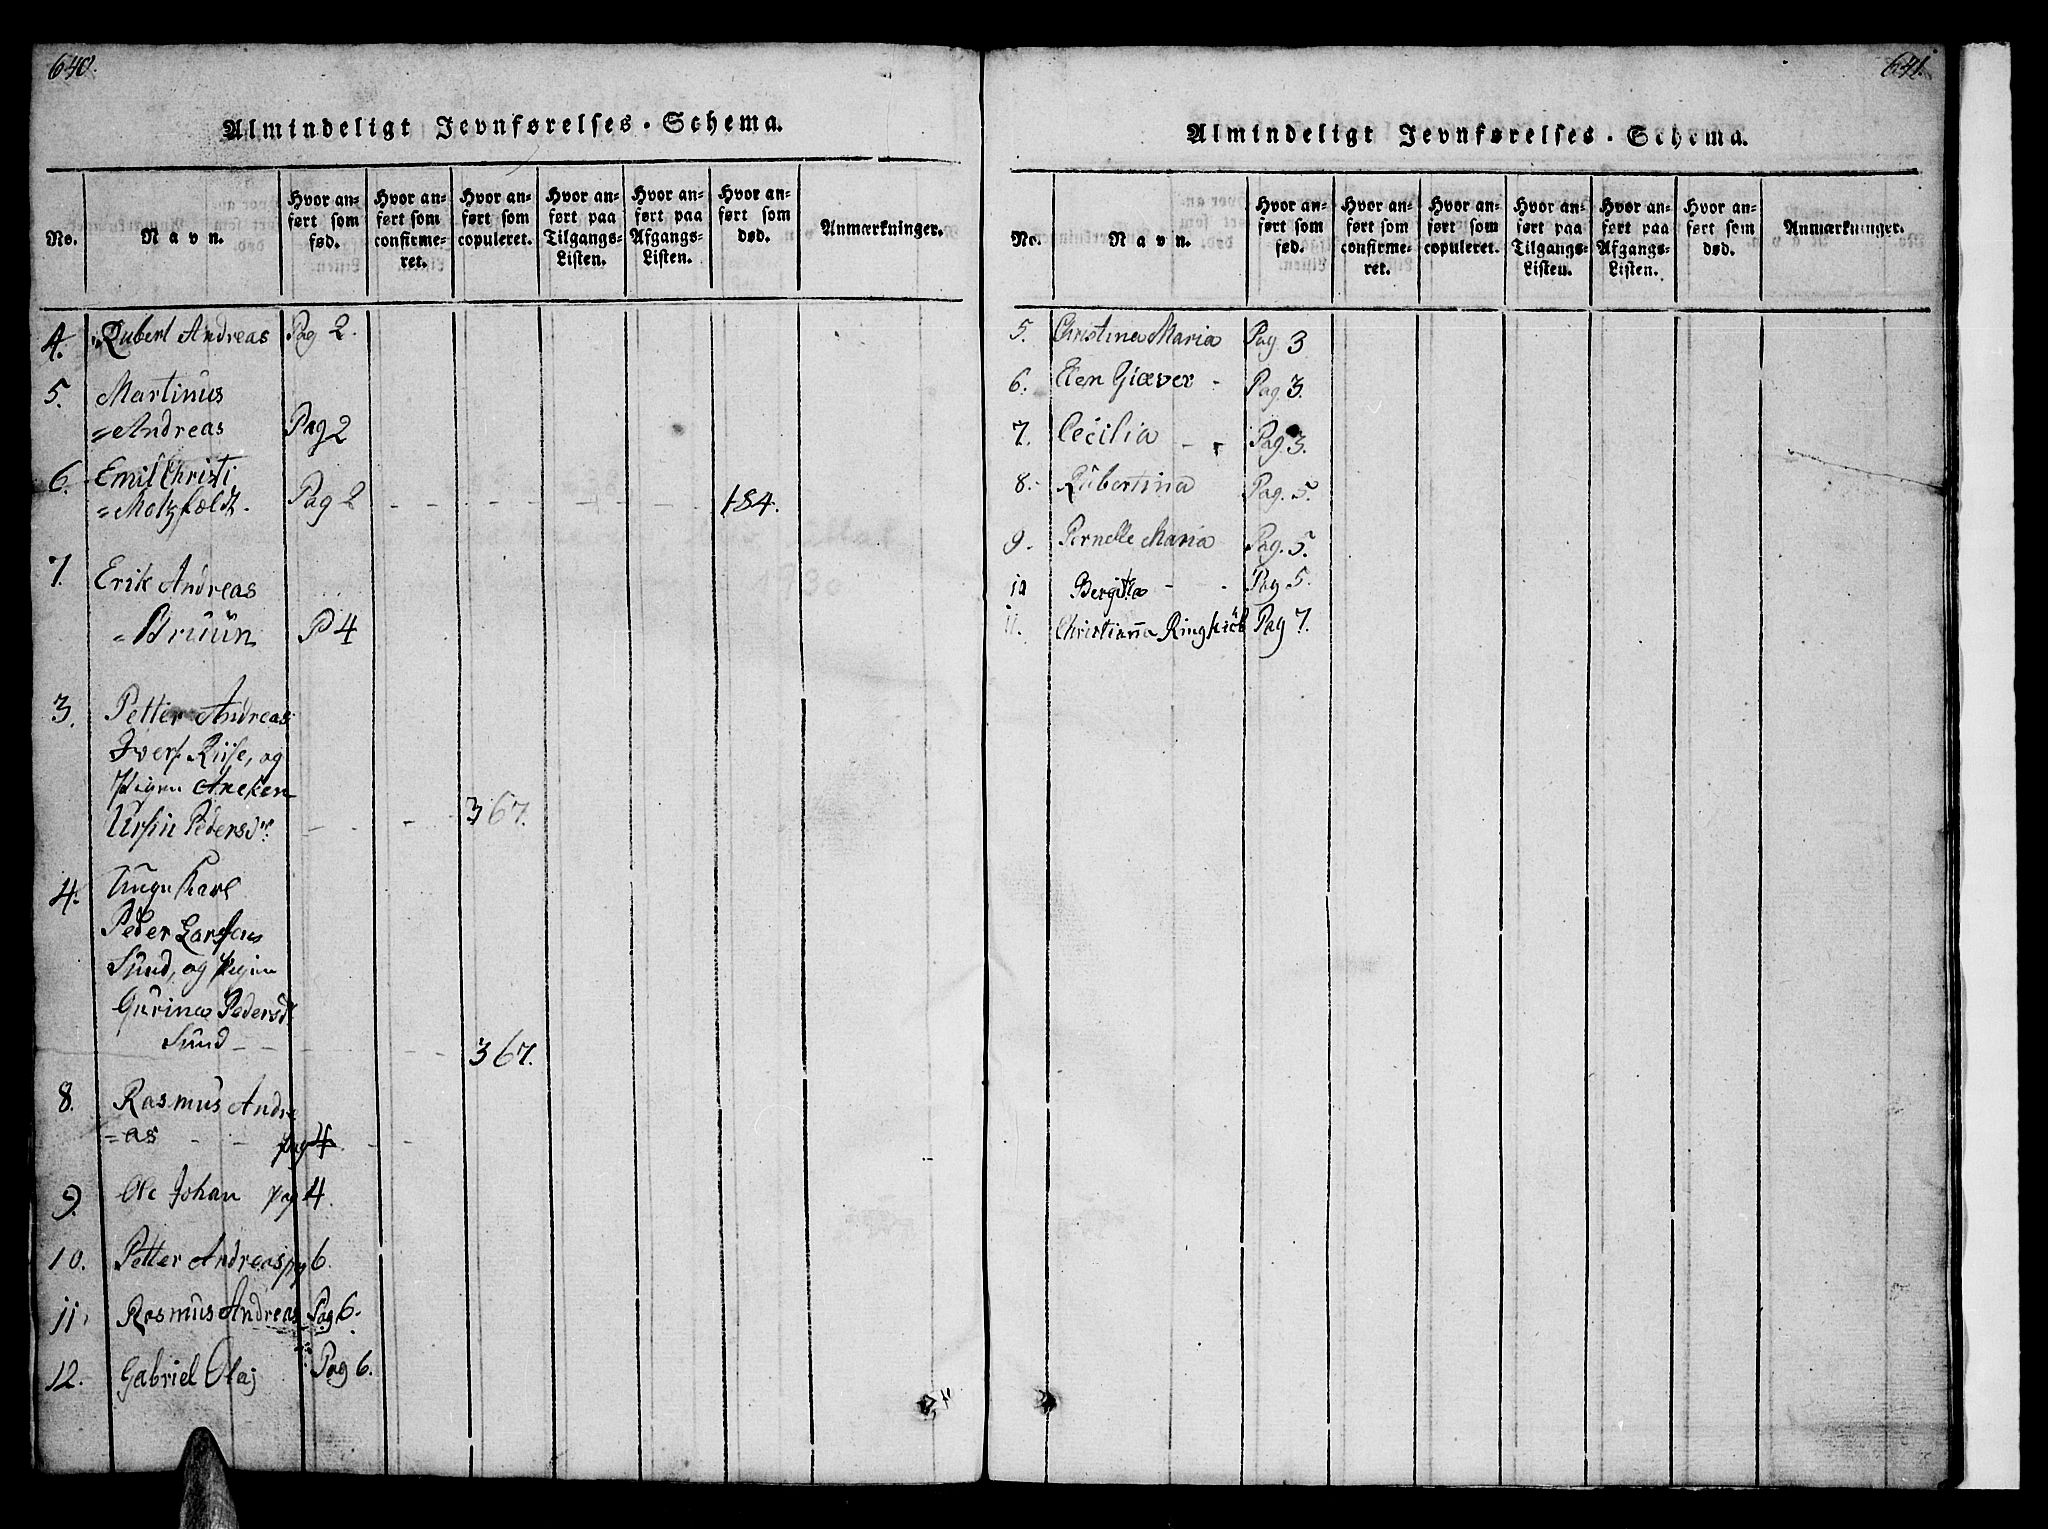 640.
Almindeligt Jevnførelses-Schema.
No.
Navn.
Hvor an-
ført som
fød.
Hvor an-
ført som
confirme-
ret.
Hvor an-
ført som
copuleret.
Hvor an-
ført paa
Tilgangs-
Listen.
Hvor an-
ført paa
Afgangs-
Listen.
Hvor an-
ført som
død.
Anmærkninger.
4. Rubert Andreas Pag 2.
5. Martinus
=Andreas Pag 2
6. Emil Christi
=Motzfældt. Pag 2 - - - - - - 184.
7. Erik Andreas
=Bruun P 4
3. Petter Andreas
Iverß Riise, og
Pigen Aneken
Ursin Pedersdr. - - - 367.
4. Unge Karl
Peder Larssen
Sund, og Pigen
Gurina Pedersd
Sund - - - - - 367.
8. Rasmus Andre
=as - - pag 4 -
9. Ole Johan pag 4.
10. Petter Andreas pg 6
11. Rasmus Andreas Pag 6.
12. Gabriel Olaj Pag 6.
641.
Almindeligt Jevnførelses-Schema.
No.
Navn.
Hvor an-
ført som
fød.
Hvor an-
ført som
confirme-
ret.
Hvor an-
ført som
copuleret.
Hvor an-
ført paa
Tilgangs-
Listen.
Hvor an-
ført paa
Afgangs-
Listen.
Hvor an-
ført som
død.
Anmærkninger.
5. Christina Maria Pag 3
6. Elen Giæver - Pag. 3.
7. Cecilia - - Pag. 3.
8.- Rubertina Pag. 5.
9. Pernelle Maria Pag. 5.
10 Bergitha - - Pag 5.
11. Christianna Ringkiöb Pag 7.